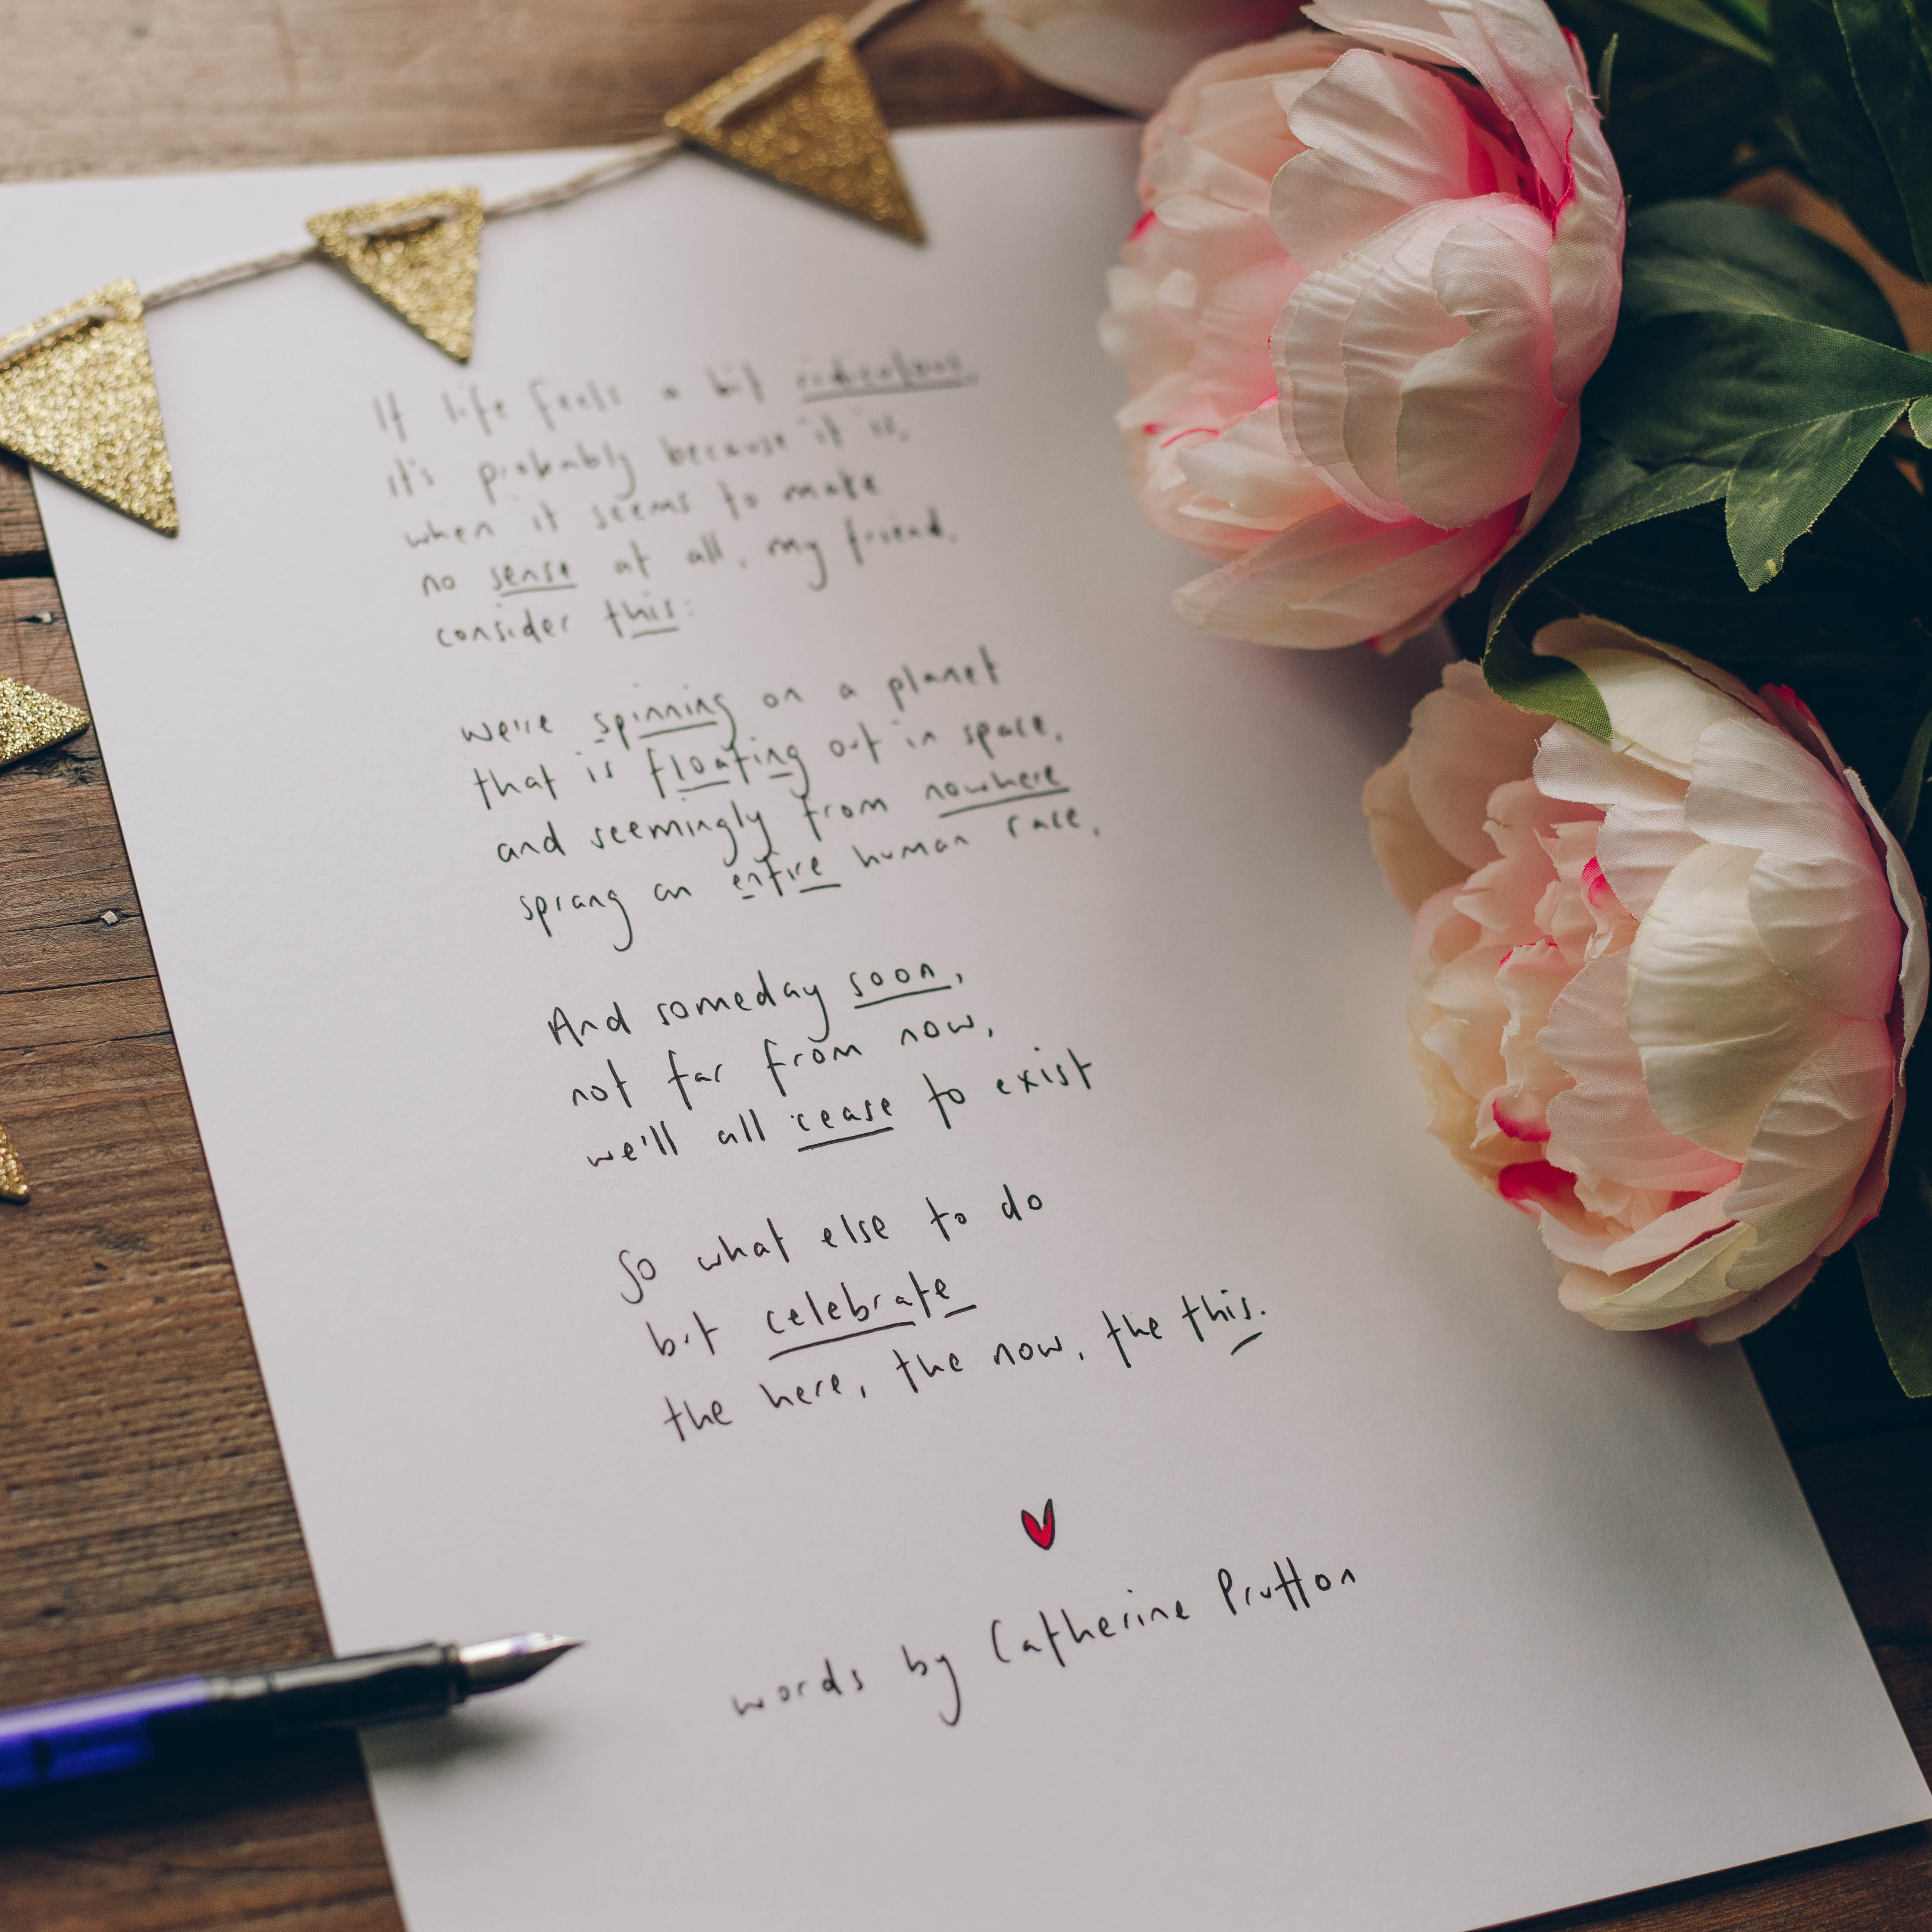 If life feels a bit ridiculous,
it's probably because it is,
when it seems to make
no sense at all, my friend,
consider this:
we're spinning on a planet
that is floating out in space,
and seemingly from nowhere
sprang an entire human race,
And someday soon,
not far from now,
we'll all cease to exist
So what else to do
but celebrate
the here, the now, the this.
words by Catherine Prutton